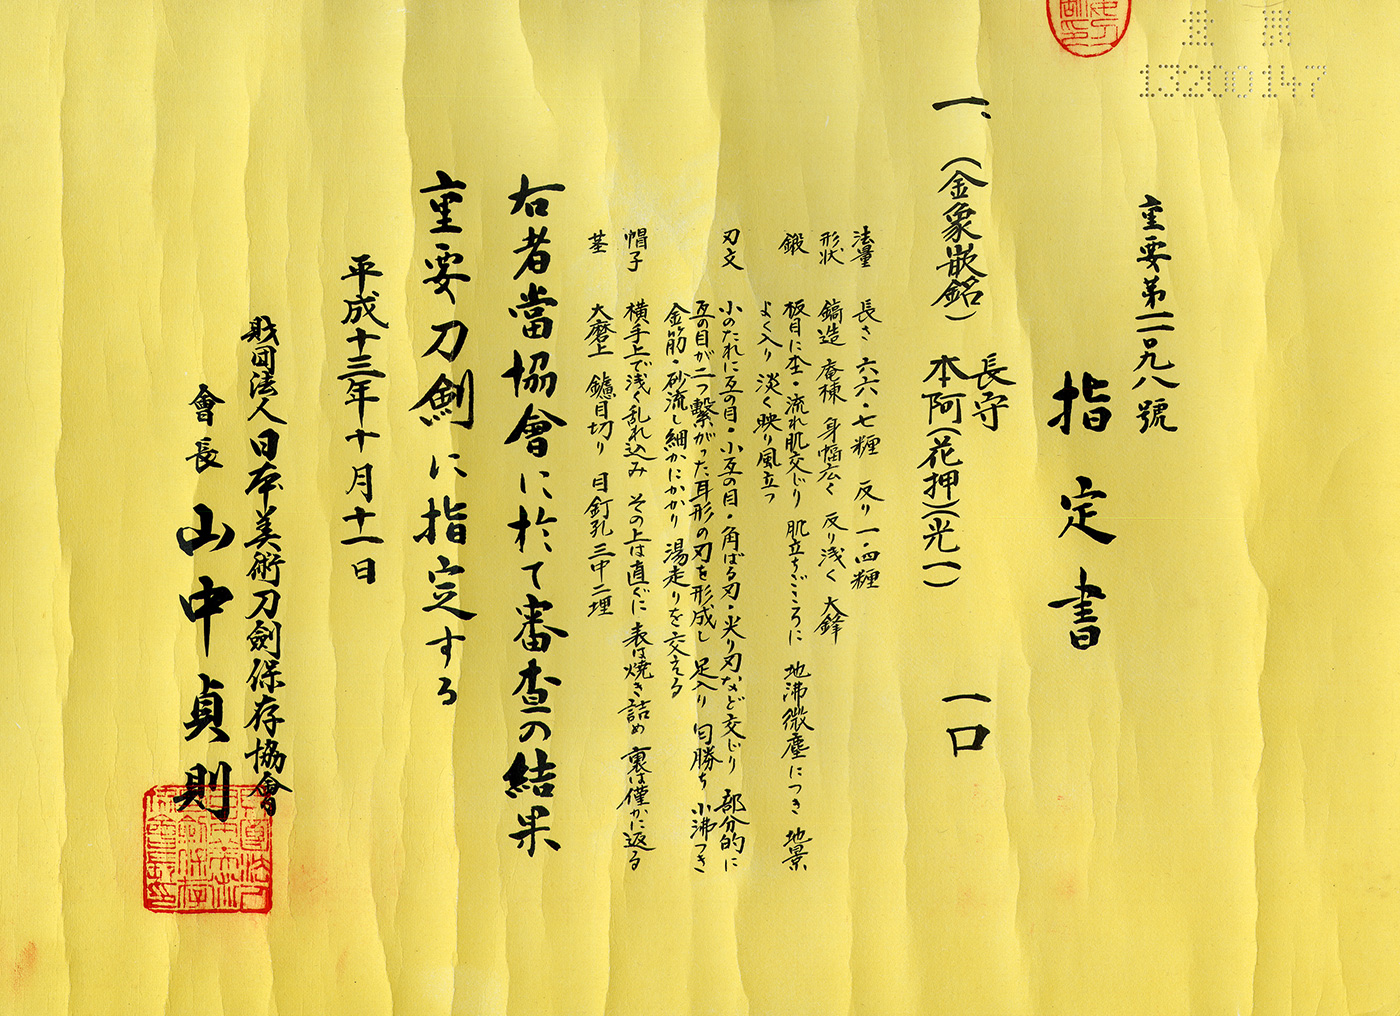 13200147
重要第一一二九八號
指定書
一、(金象嵌銘) 長守
本阿(花押)(光一) 一口
法量 長さ 六六・七糎 反り 一・四糎
形状 鎬造 庵棟 身幅広く 反り浅く 大鋒
鍛 板目に杢・流れ肌交じり 肌立ちごころに 地沸微塵につき 地景
よく入り 淡く映り風立つ
刃文 小のたれに互の目・小互の目・角ばる刃・尖り刃など交じり 部分的に
互の目が二つ繋がった耳形の刃を形成し 足入り 匂勝ち 小沸つき
金筋・砂流し細かにかかり 湯走りを交える
帽子 横手上で浅く乱れ込み その上は直ぐに 表は焼き詰め 裏は僅かに返る
茎 大磨上 鑢目切り 目釘孔三中二埋
右者當協會に於て審査の結果
重要刀剣に指定する
平成十三年十月十一日
財団法人日本美術刀劍保存協會
會長 山中貞則